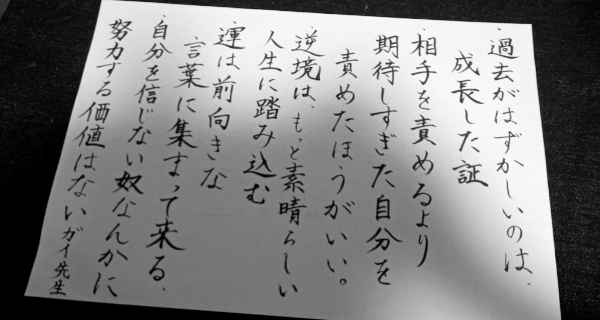 ・過去がはずかしいのは、
成長した証
・相手を責めるより
期待しすぎた自分を
責めたほうがいい。
・逆境は、もっと素晴らしい
人生に踏み込む
・運は前向きな
言葉に集まって来る.
・自分を信じない奴なんかに
努力する価値はないガイ先生